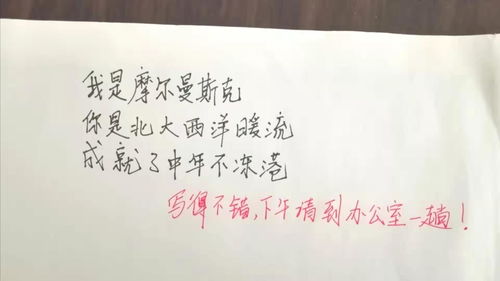 我是摩尔曼斯克
你是北大西洋暖流
成就了中年不冻港
写得不错,下午请到办公室一趟!